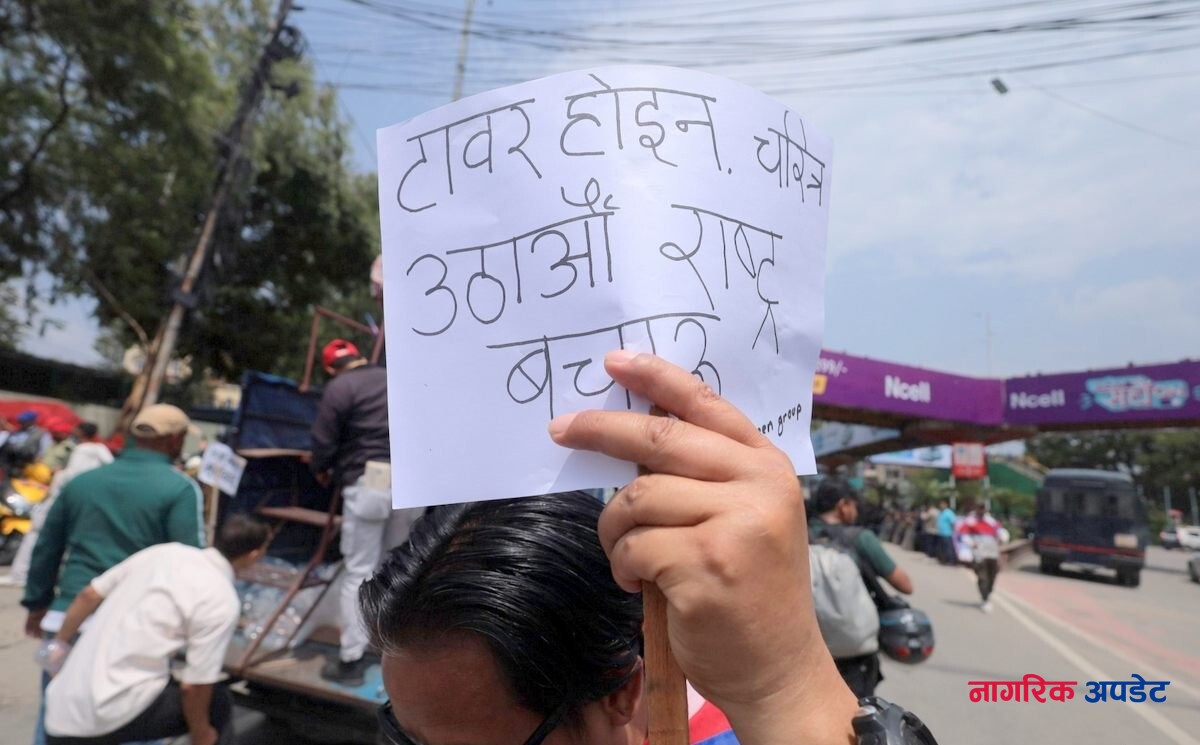 टावर होइन. चरित्र
उठाऔँ राष्ट्र
बचाऊ
group
Ncell
Ncell
नागरिक अपडेट